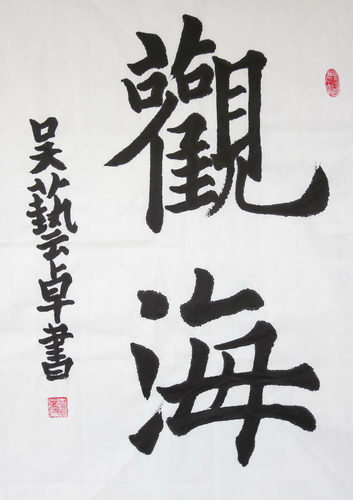 觀海
吴藝卓書